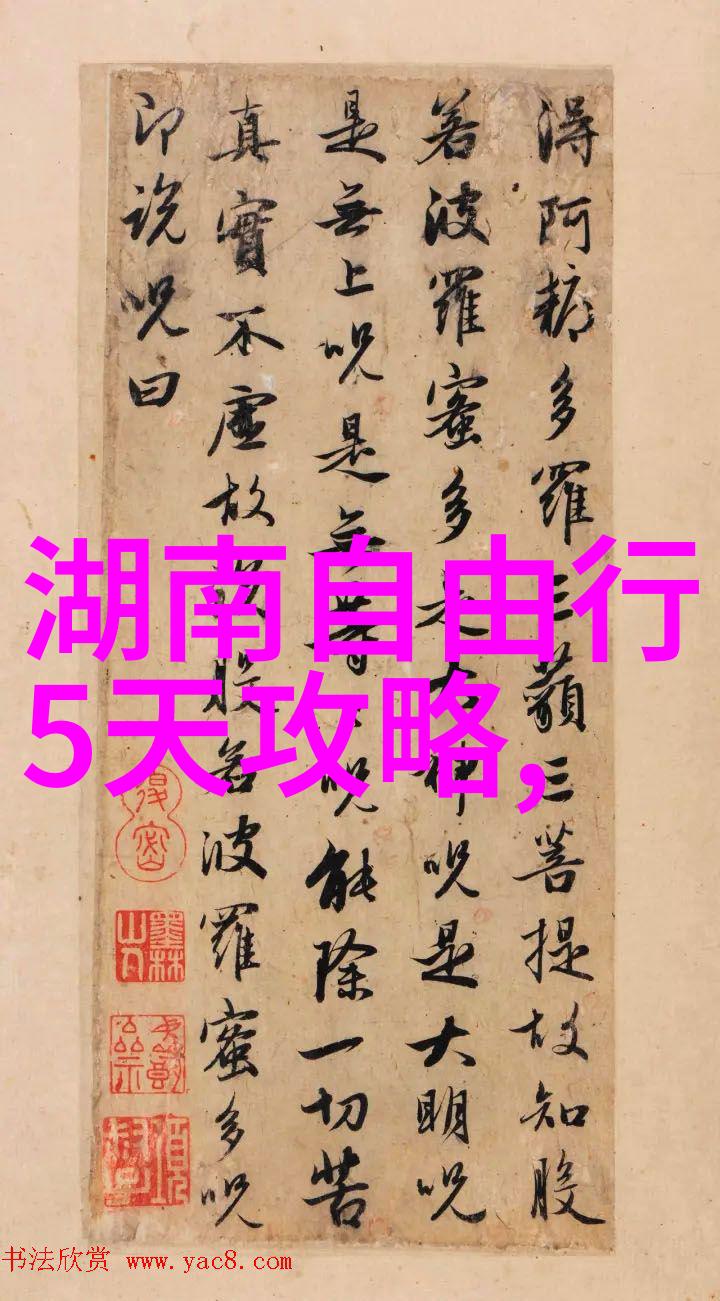 得阿耨多羅三藐三菩提故知般
若波羅蜜多是大神呪是大明呪
是無上呪是無等等呪能除一切苦
真實不虛故說般若波羅蜜多呪
即說呪曰
墨林山人
湖南自由行
5天攻略,
书法欣赏 www.yac8.com